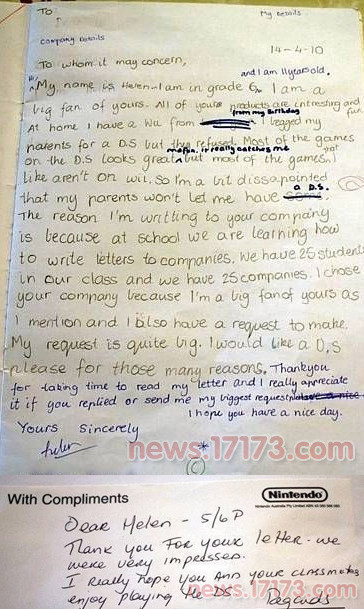 To:
My Details
Company Details
14-4-10
To whom it may concern,
and I am 11 years old.
My name is Helen. I am in grade 6. I am a
big fan of yours. All of yours products are intresting and fun
from my Birthday
At home I have a Wii from I begged my
parents for a DS but they refused. Most of the games
on the DS looks great but most of the games that
like aren't on Wii. So I'm a bit dissapointed
that my parents won't let me have a D.S.
The reason I'm writing to your company
is because at school we are learning how
to write letters to companies. We have 25 students
in our class and we have 25 companies. I chose
your company because I'm a big fan of yours as
I mention and I also have a request to make.
My request is quite big. I would like a D.S
please for those many reasons. Thankyou
for taking time to read my letter and I really appreciate
it if you replied or send me my biggest request
I hope you have a nice day.
Yours Sincerely
Helen
news.17173.com
With Compliments
Nintendo
Dear Helen - 5/6P
Thank you for your letter - we
were very impressed.
I really hope you and your classmates
enjoy playing to DS
Regards
news.17173.com